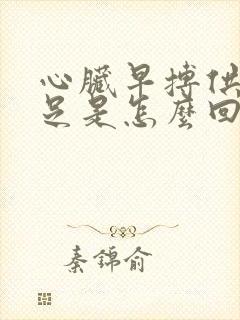 心臟早搏供
足是怎麼回
秦錦俞